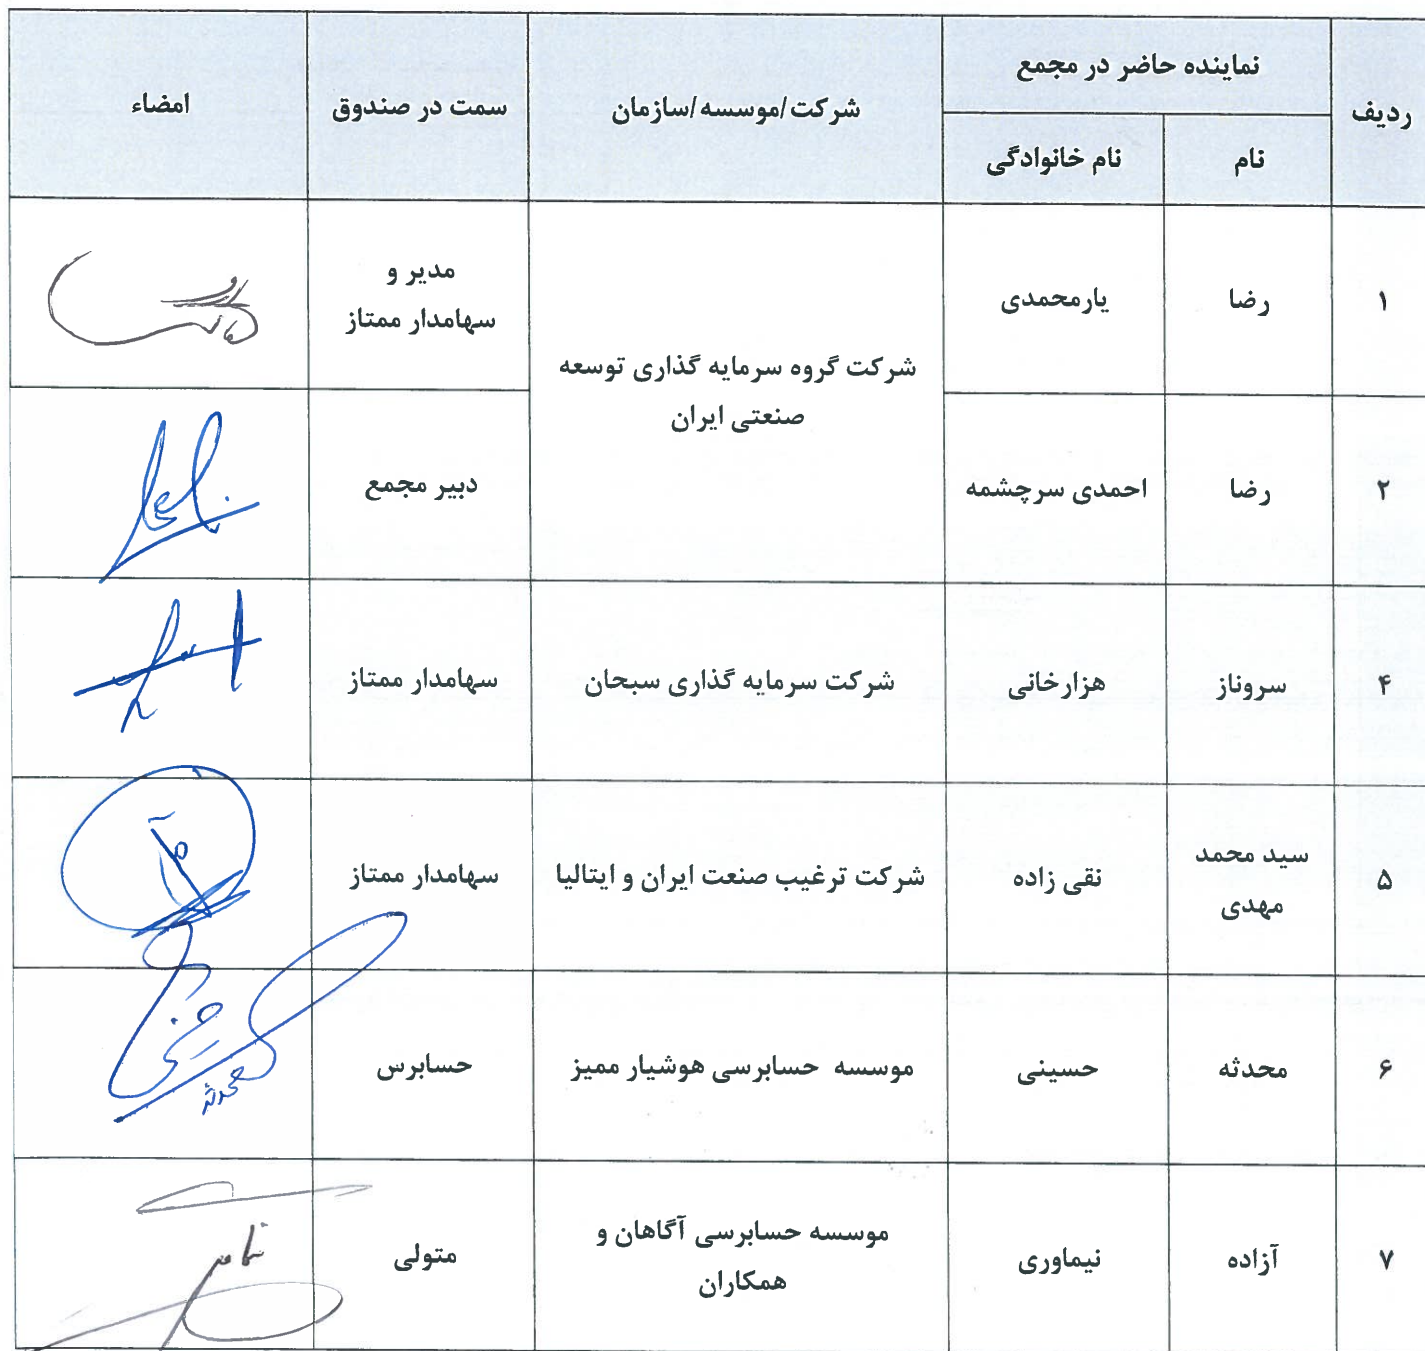 ردیف
نماینده حاضر در مجمع
نام
نام خانوادگی
شرکت/موسسه/سازمان
سمت در صندوق
امضاء
۱
رضا
یارمحمدی
شرکت گروه سرمایه گذاری توسعه
صنعتی ایران
مدیر و
سهامدار ممتاز
۲
رضا
احمدی سرچشمه
دبیر مجمع
۴
سروناز
هزارخانی
شرکت سرمایه گذاری سبحان
سهامدار ممتاز
۵
سید محمد
مهدی
نقی زاده
شرکت ترغیب صنعت ایران و ایتالیا
سهامدار ممتاز
۶
محدثه
حسینی
موسسه حسابرسی هوشیار ممیز
حسابرس
۷
آزاده
نیماوری
موسسه حسابرسی آگاهان و
همکاران
متولی